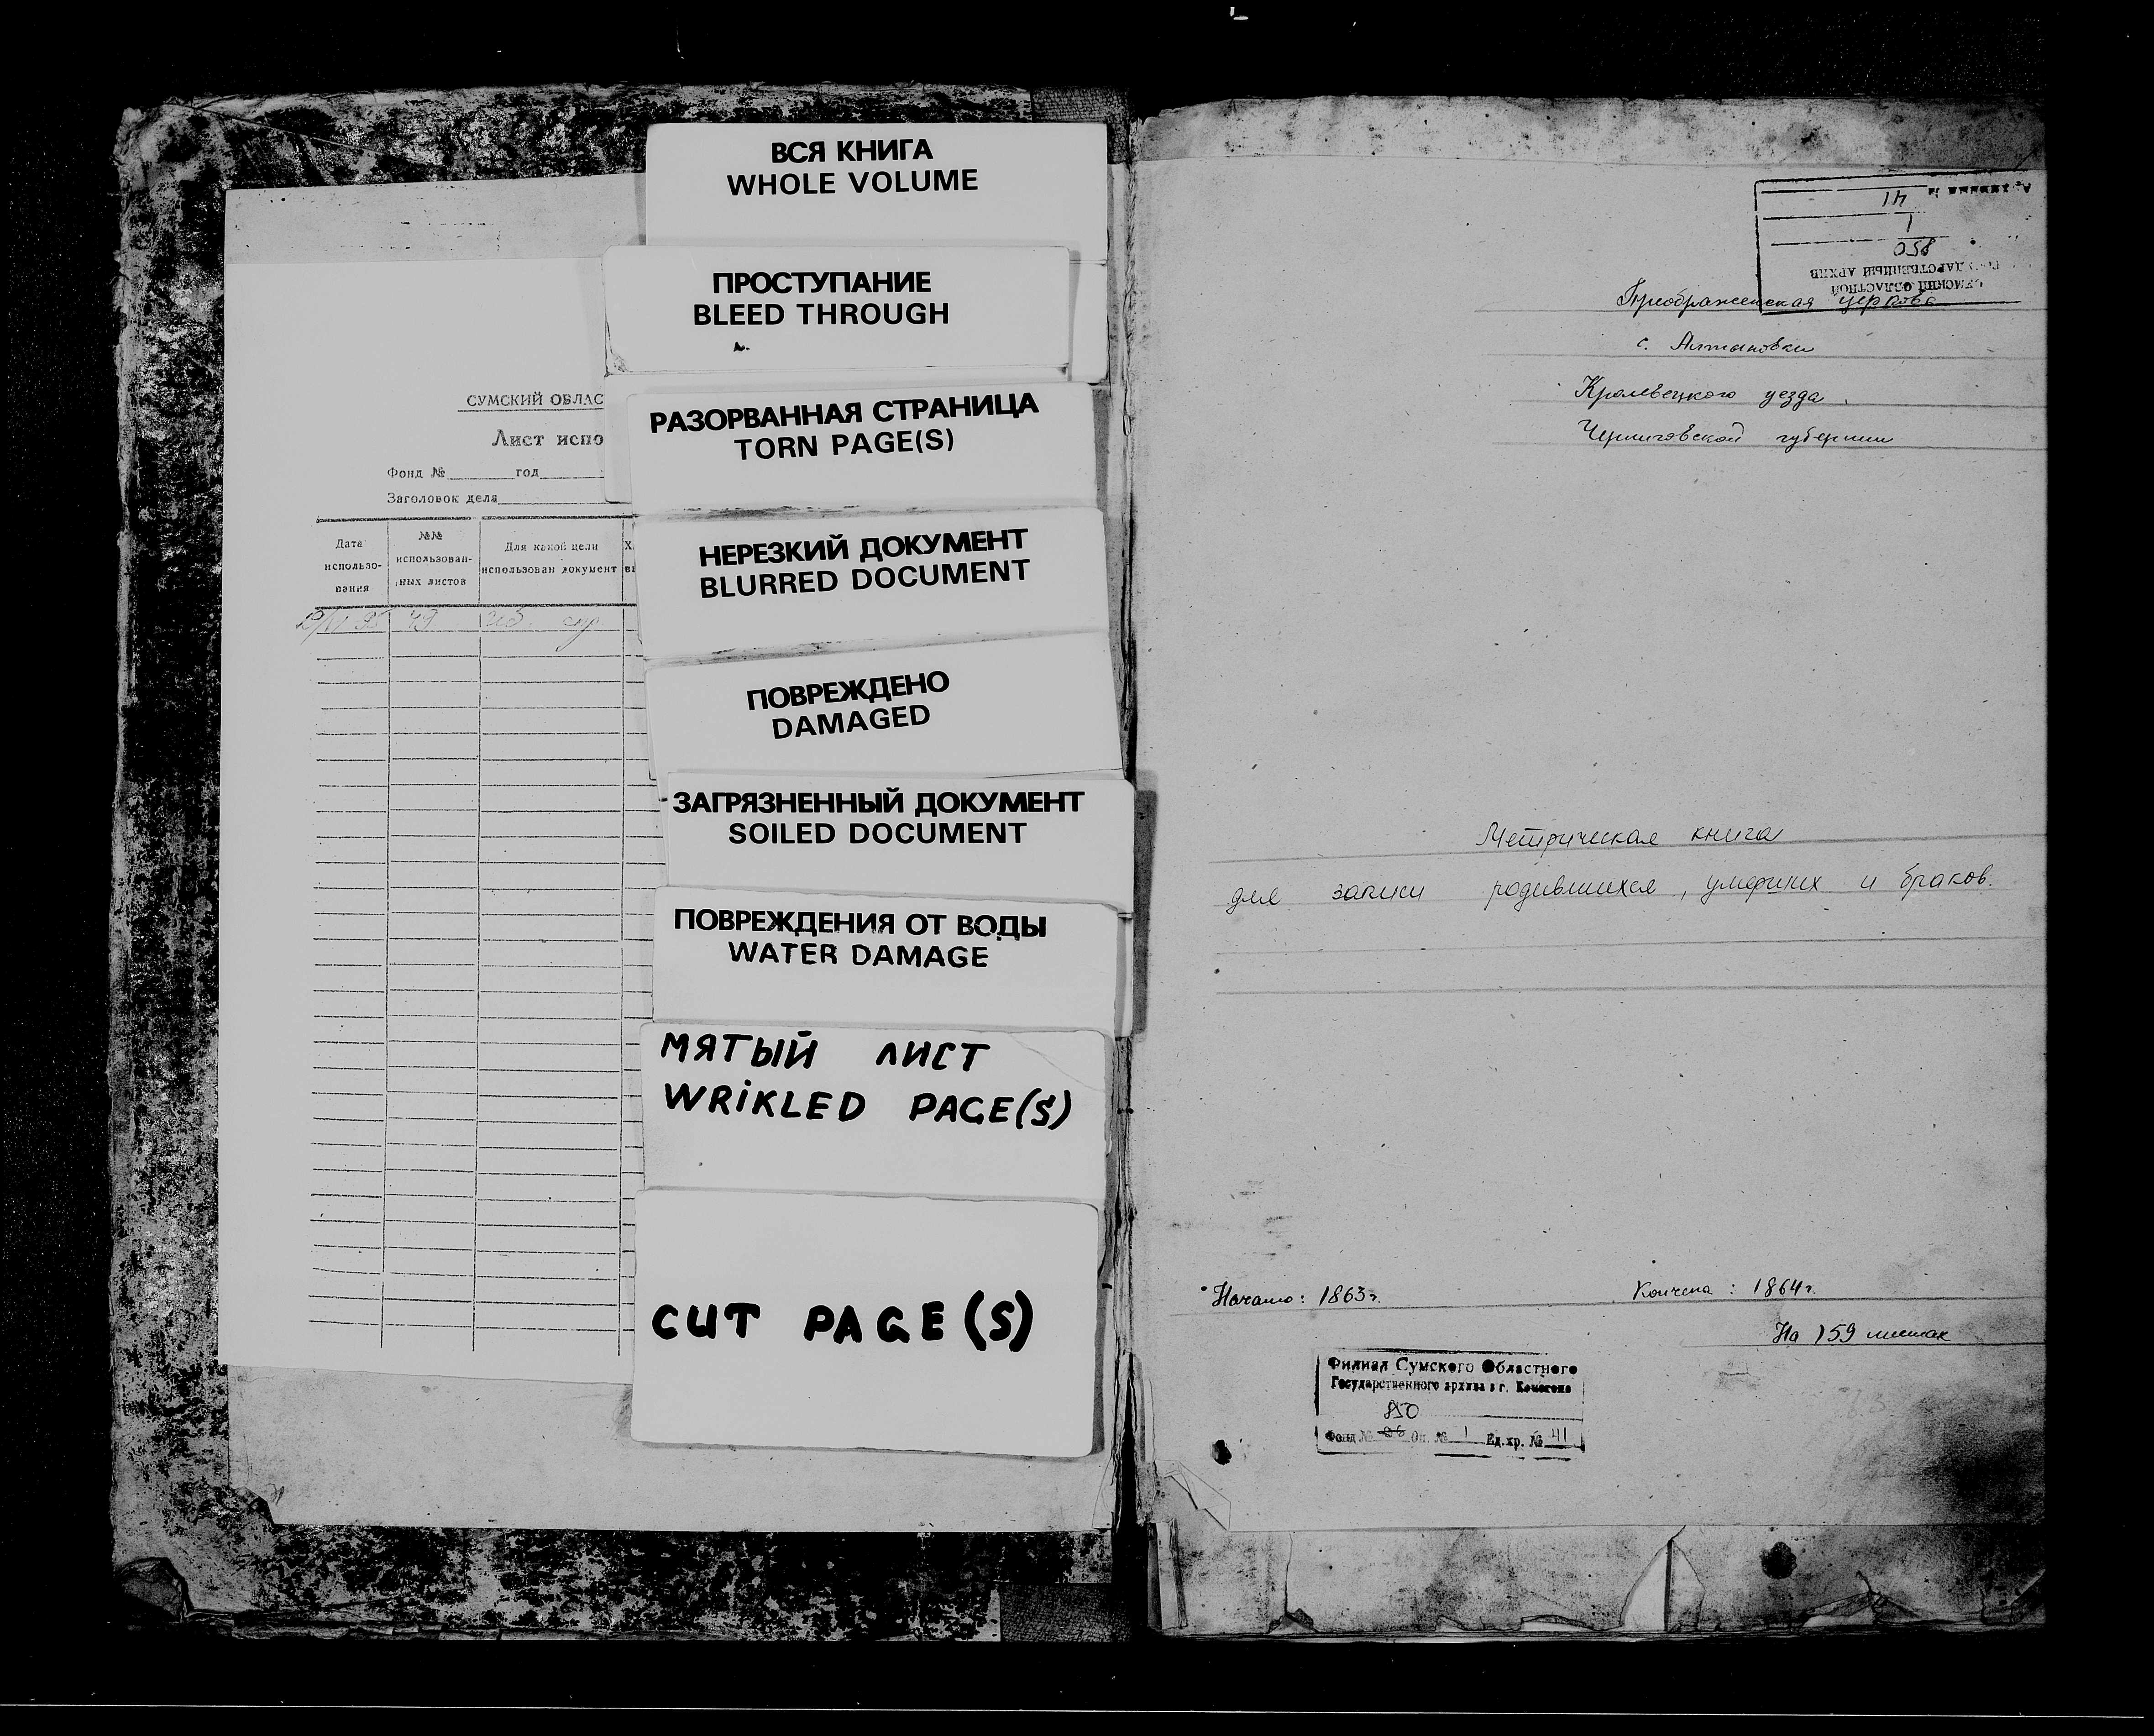 СУМСКИЙ ОБЛАС
Лист испо
Фонд № год
Заголовок дела
Дата использо-вания
№№ использован-ных листов
Для какой цели использован документ
49
ВСЯ КНИГА
WHOLE VOLUME
ПРОСТУПАНИЕ
BLEED THROUGH
РАЗОРВАННАЯ СТРАНИЦА
TORN PAGE(S)
НЕРЕЗКИЙ ДОКУМЕНТ
BLURRED DOCUMENT
ПОВРЕЖДЕНО
DAMAGED
ЗАГРЯЗНЕННЫЙ ДОКУМЕНТ
SOILED DOCUMENT
ПОВРЕЖДЕНИЯ ОТ ВОДЫ
WATER DAMAGE
МЯТЫЙ ЛИСТ
WRIKLED PAGE(S)
CUT PAGE(S)
СУМСКИЙ ОБЛАСТНОЙ
ГОСУДАРСТВЕННЫЙ АРХИВ
850
1
41
Преображенская церковь
с. Алтыновки
Кролевецкого уезда
Черниговской губернии
Метрическая книга
для записи родившихся, умерших и браков.
Начато: 1863г. Кончена: 1864г.
На 159 листах
Филиал Сумского Областного
Государственного архива в г. Конотопе
850
Фонд № Оп. № 1 Ед.хр. № 41